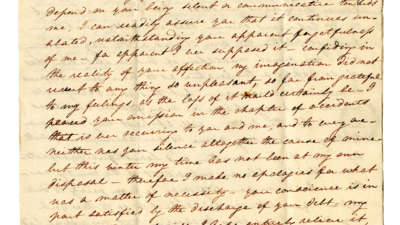 depend on your being silent or communicative towards
me, I can readily assure you that it continues un-
abated, notwithstanding your apparent forgetfulness
of me - for apparent I ever supposed it - confiding in
the reality of your affection, my imagination did not
revert to any thing so unpleasant, so far from grateful
to my feelings as the loss of it would certainly be - I
placed your omission in the chapter of accidents
that is ever occurring to you and me, and to every one -
neither has your silence altogether the cause of mine -
but this winter my time has not been at my own
disposal - therefore I made no apologies for what
was a matter of necessity - your conscience is in
part satisfied by the discharge of your debt, my
entirely relieve it,